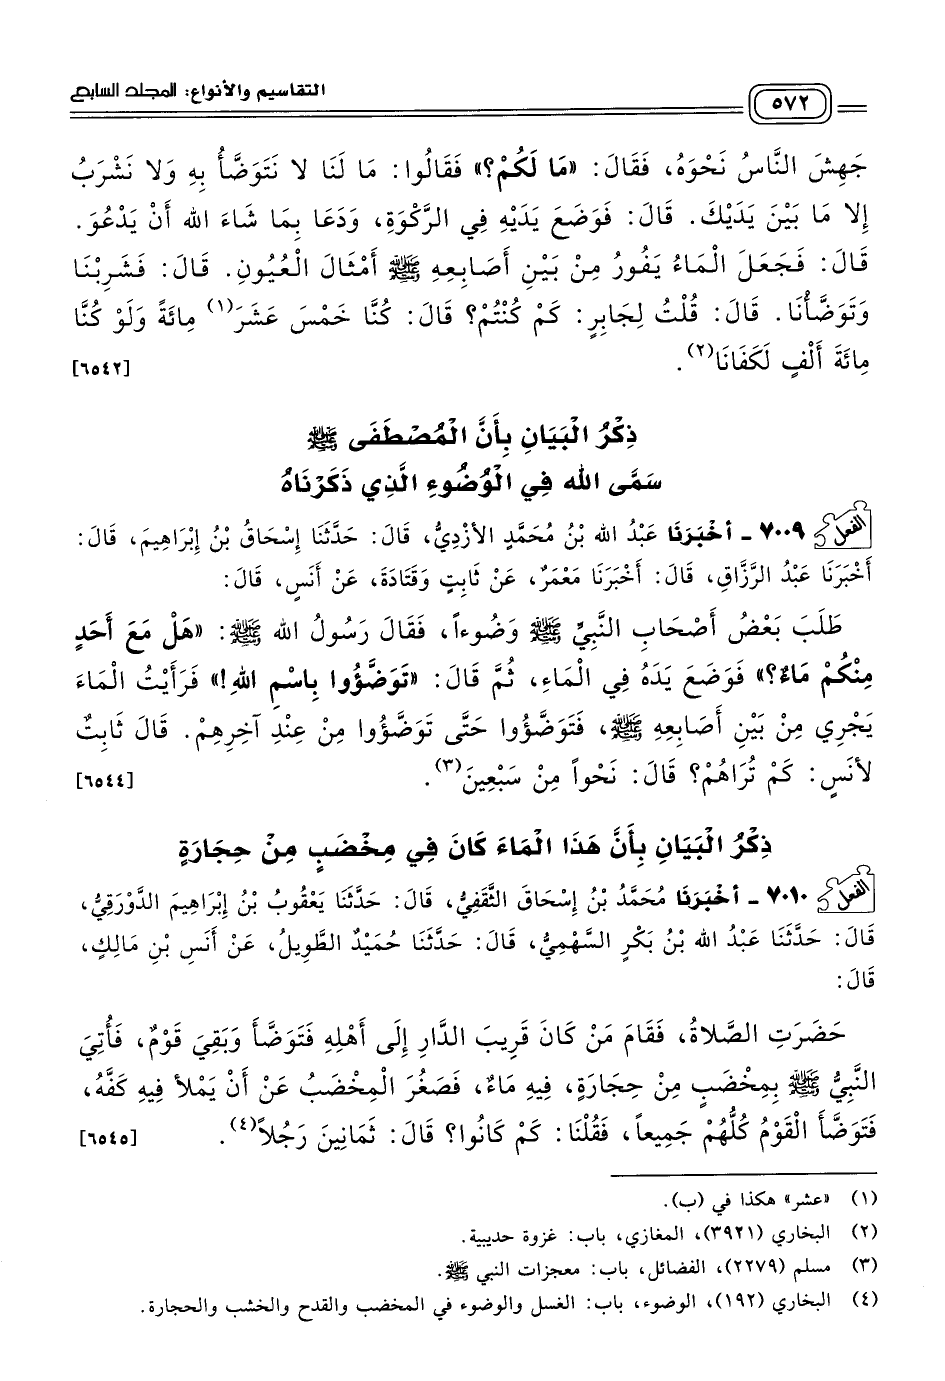 ٥٧٢ التقاسيم والأنواع: المجلد السابع
جَهِشَ النَّاسُ نَحْوَهُ، فَقَالَ: «مَا لَكُمْ؟» فَقَالُوا: مَا لَنَا لا نَتَوَضَّأُ بِهِ وَلا نَشْرَبُ
إِلا مَا بَيْنَ يَدَيْكَ. قَالَ: فَوَضَعَ يَدَيْهِ فِي الرَّكْوَةِ، وَدَعَا بِمَا شَاءَ الله أَنْ يَدْعُوَ.
قَالَ: فَجَعَلَ الْمَاءُ يَفُورُ مِنْ بَيْنِ أَصَابِعِهِ ﷺ أَمْثَالَ الْعُيُونِ. قَالَ: فَشَرِبْنَا
وَتَوَضَّأْنَا. قَالَ: قُلْتُ لِجَابِرٍ: كَمْ كُنْتُمْ؟ قَالَ: كُنَّا خَمْسَ عَشَرَ(١) مِائَةً وَلَوْ كُنَّا
مِائَةَ أَلْفٍ لَكَفَانَا(٢). [٦٥٤٢]
ذِكْرُ الْبَيَانِ بِأَنَّ الْمُصْطَفَى ﷺ
سَمَّى الله فِي الْوُضُوءِ الَّذِي ذَكَرْنَاهُ
الفعل ٧٠٠٩ - أَخْبَرَنَا عَبْدُ الله بْنُ مُحَمَّدٍ الأَزْدِيُّ، قَالَ: حَدَّثَنَا إِسْحَاقُ بْنُ إِبْرَاهِيمَ، قَالَ:
أَخْبَرَنَا عَبْدُ الرَّزَّاقِ، قَالَ: أَخْبَرَنَا مَعْمَرٌ، عَنْ ثَابِتٍ وَقَتَادَةَ، عَنْ أَنَسٍ، قَالَ:
طَلَبَ بَعْضُ أَصْحَابِ النَّبِيِّ ﷺ وَضُوءاً، فَقَالَ رَسُولُ الله ﷺ: «هَلْ مَعَ أَحَدٍ
مِنْكُمْ مَاءٌ؟» فَوَضَعَ يَدَهُ فِي الْمَاءِ، ثُمَّ قَالَ: «تَوَضَّؤُوا بِاسْمِ اللهِ!» فَرَأَيْتُ الْمَاءَ
يَجْرِي مِنْ بَيْنِ أَصَابِعِهِ ﷺ، فَتَوَضَّؤُوا حَتَّى تَوَضَّؤُوا مِنْ عِنْدِ آخِرِهِمْ. قَالَ ثَابِتٌ
لأَنَسٍ: كَمْ تُرَاهُمْ؟ قَالَ: نَحْواً مِنْ سَبْعِينَ(٣). [٦٥٤٤]
ذِكْرُ الْبَيَانِ بِأَنَّ هَذَا الْمَاءَ كَانَ فِي مِخْضَبٍ مِنْ حِجَارَةٍ
الفعل ٧٠١٠ - أَخْبَرَنَا مُحَمَّدُ بْنُ إِسْحَاقَ الثَّقَفِيُّ، قَالَ: حَدَّثَنَا يَعْقُوبُ بْنُ إِبْرَاهِيمَ الدَّوْرَقِيُّ،
قَالَ: حَدَّثَنَا عَبْدُ الله بْنُ بَكْرٍ السَّهْمِيُّ، قَالَ: حَدَّثَنَا حُمَيْدٌ الطَّوِيلُ، عَنْ أَنَسِ بْنِ مَالِكٍ،
قَالَ:
حَضَرَتِ الصَّلاةُ، فَقَامَ مَنْ كَانَ قَرِيبَ الدَّارِ إِلَى أَهْلِهِ فَتَوَضَّأَ وَبَقِيَ قَوْمٌ، فَأُتِيَ
النَّبِيُّ ﷺ بِمِخْضَبٍ مِنْ حِجَارَةٍ، فِيهِ مَاءٌ، فَصَغُرَ الْمِخْضَبُ عَنْ أَنْ يَمْلأَ فِيهِ كَفَّهُ،
فَتَوَضَّأَ الْقَوْمُ كُلُّهُمْ جَمِيعاً، فَقُلْنَا: كَمْ كَانُوا؟ قَالَ: ثَمَانِينَ رَجُلاً(٤). [٦٥٤٥]
(١) «عشر» هكذا في (ب).
(٢) البخاري (٣٩٢١)، المغازي، باب: غزوة حديبية.
(٣) مسلم (٢٢٧٩)، الفضائل، باب: معجزات النبي ﷺ.
(٤) البخاري (١٩٢)، الوضوء، باب: الغسل والوضوء في المخضب والقدح والخشب والحجارة.